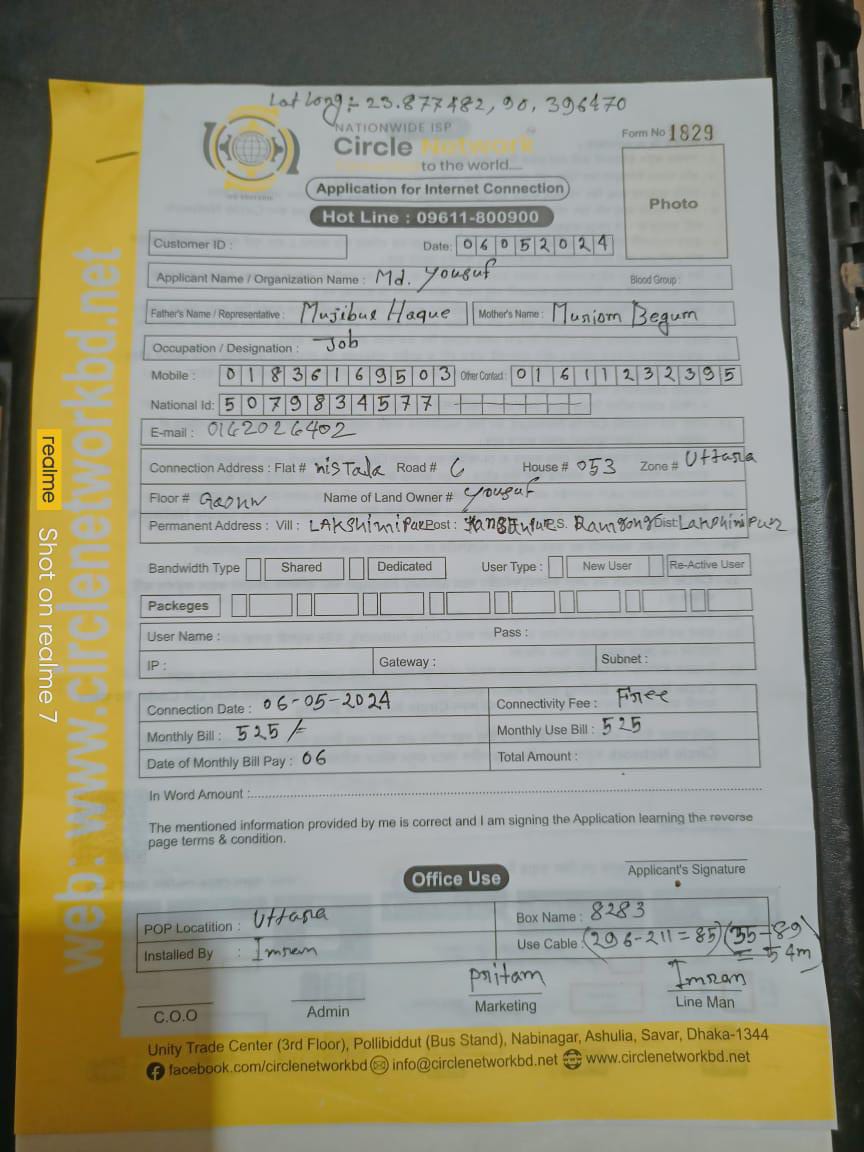 Lat Long:- 23.877482, 90.396470
NATIONWIDE ISP
Circle Network
to the world....
Form No 1829
Application for Internet Connection
Photo
Hot Line : 09611-800900
Customer ID :
Date: 06052024
Applicant Name / Organization Name : Md. Yousuf Blood Group :
Father's Name / Representative : Mujibur Haque Mother's Name : Muriom Begum
Occupation / Designation : Job
Mobile : 01836169503 Other Contact : 01611232395
National Id: 5079834577
E-mail : 0162026402
Connection Address : Flat # Road # 6 House # 053 Zone # Uttara
Floor # Name of Land Owner # Yousuf
Permanent Address : Vill : LAKshimiPur Post : P.S. Ramgong Dist: Lakshimipur
Bandwidth Type Shared Dedicated User Type : New User Re-Active User
Packeges
User Name : Pass :
IP : Gateway : Subnet :
Connection Date : 06-05-2024 Connectivity Fee : Free
Monthly Bill : 525/= Monthly Use Bill : 525
Date of Monthly Bill Pay : 06 Total Amount :
In Word Amount :
The mentioned information provided by me is correct and I am signing the Application learning the reverse
page terms & condition.
Applicant's Signature
Office Use
POP Locatition : Uttara Box Name : 8283
Installed By : Imran Use Cable : (296-211=85) (35-89
= 54m)
Pritam Imran
C.O.O Admin Marketing Line Man
Unity Trade Center (3rd Floor), Pollibiddut (Bus Stand), Nabinagar, Ashulia, Savar, Dhaka-1344
facebook.com/circlenetworkbd info@circlenetworkbd.net www.circlenetworkbd.net
web: www.circlenetworkbd.net
realme Shot on realme 7